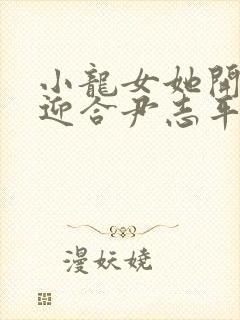 小龍女她開
迎合尹志平
漫妖嬈